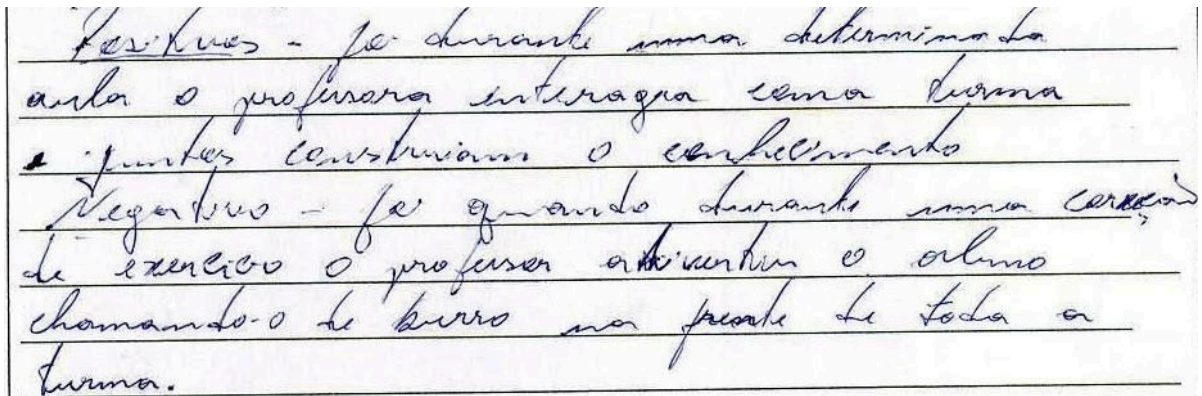 Positivos - foi durante uma determinada
aula o professora interagia coma turma
e juntos construiam o conhecimento
Negativo - foi quando durante uma correção
de exercicio o professor advertiu o aluno
chamando-o de burro na frente de toda a
turma.